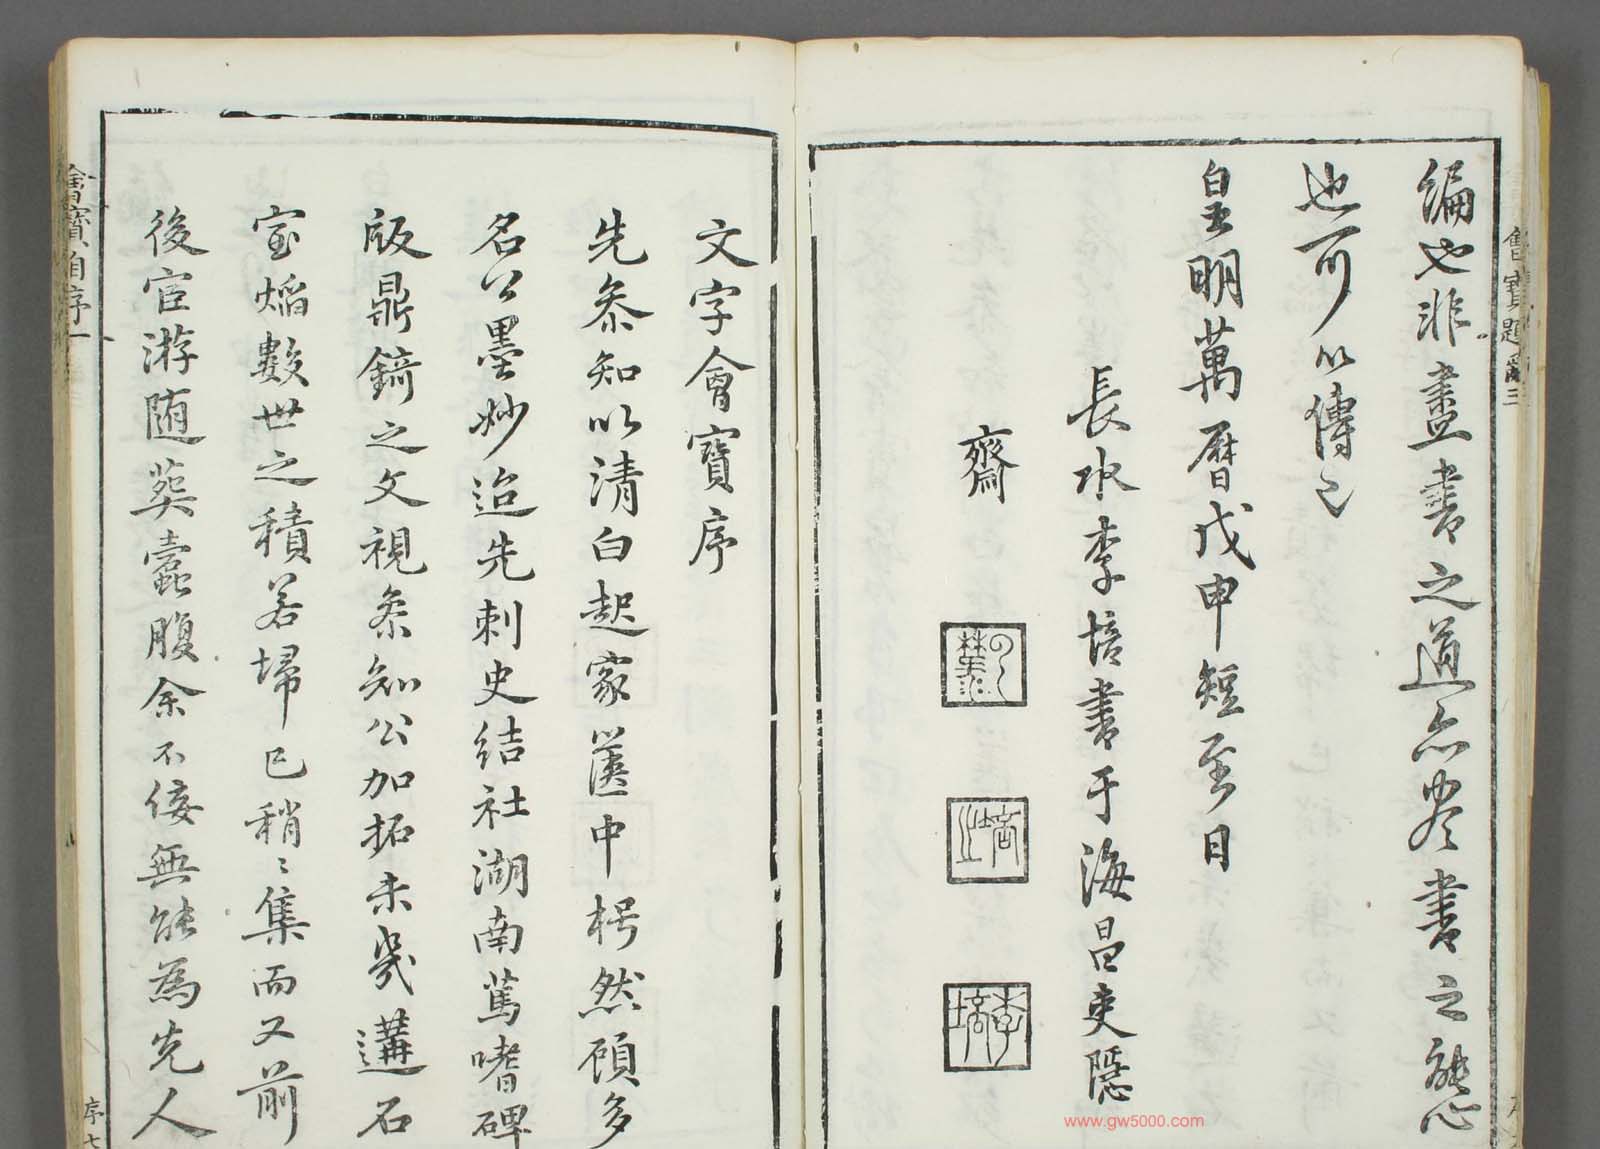 編也非盡書之道亦盡書之態
也可以傳已
皇明萬曆戊申短至日
長水李培書于海昌吏隱
齋
培之
李培
會寶題辭三
文字會寶序
先叅知以清白起家篋中枵然頋多
名公墨妙迨先刺史結社湖南篤嗜碑
版鼎錡之文視叅知公加拓未幾遘石
室焰數世之積若埽已稍〻集而又前
後宦游随葬蠹腹余不佞無能為先人
會寶自序一
序七
www.gw5000.com